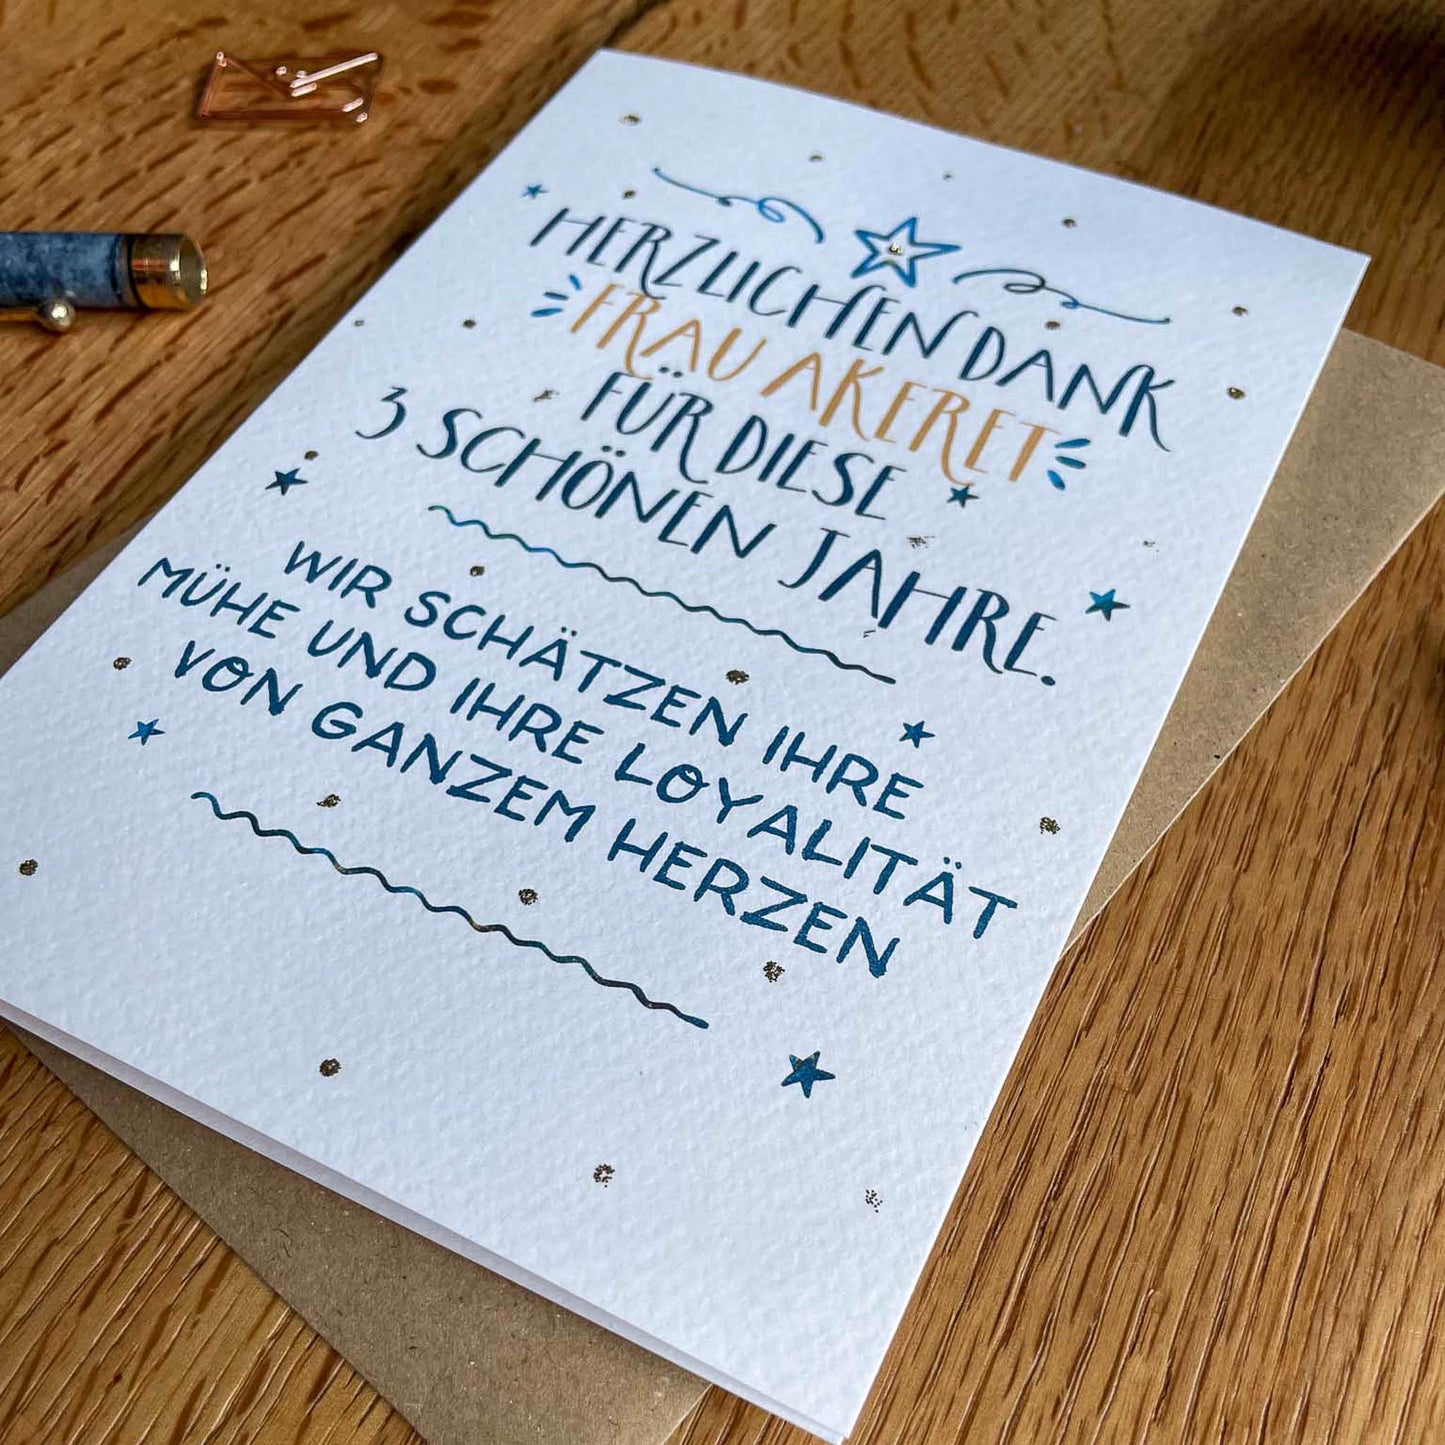 HERZLICHEN DANK
FRAU AKERET
FÜR DIESE
3 SCHÖNEN JAHRE.
WIR SCHÄTZEN IHRE
MÜHE UND IHRE LOYALITÄT
VON GANZEM HERZEN